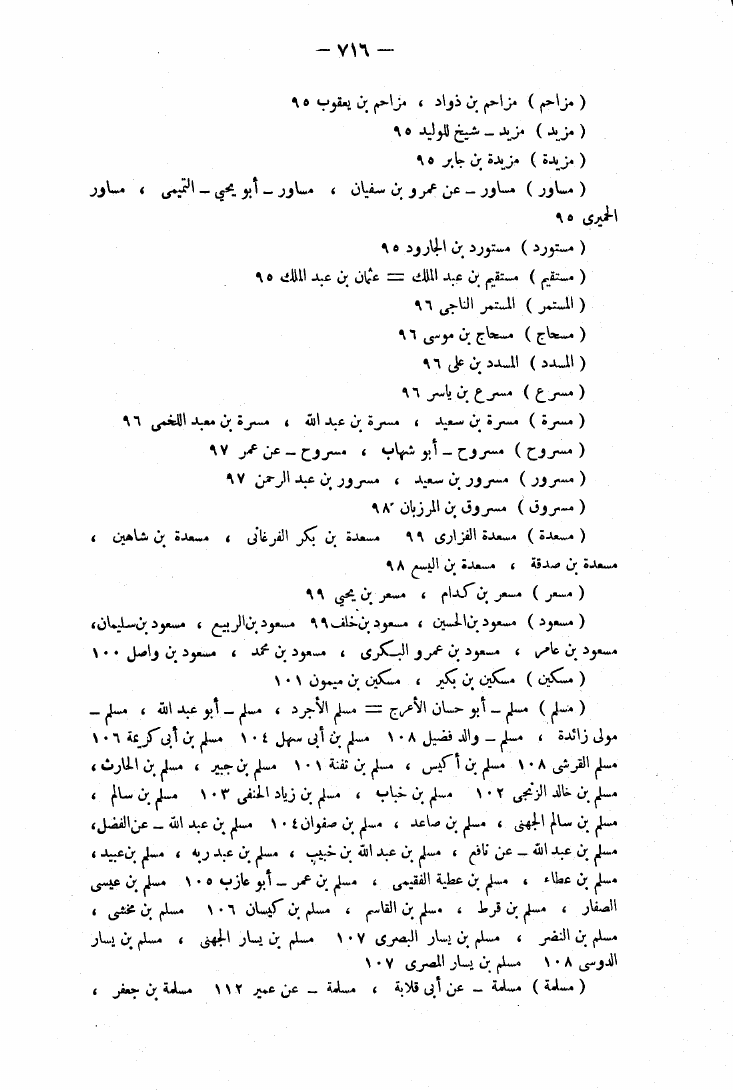 — ٧١٦ —
( مزاحم ) مزاحم بن ذواد ، مزاحم بن يعقوب ٩٥
( مزيد ) مزيد – شيخ للوليد ٩٥
( مزيدة ) مزيدة بن جابر ٩٥
( مساور ) مساور – عن عمرو بن سفيان ، مساور – أبو يحي – التميمى ، مساور
الحميرى ٩٥
( مستورد ) مستورد بن الجارود ٩٥
( مستقيم ) مستقيم بن عبد الملك = عثمان بن عبد الملك ٩٥
( المستمر ) المستمر الناجى ٩٦
( مسحاج ) مسحاج بن موسى ٩٦
( المسدد ) المسدد بن على ٩٦
( مسرع ) مسرع بن ياسر ٩٦
( مسرة ) مسرة بن سعيد ، مسرة بن عبد الله ، مسرة بن معبد اللخمى ٩٦
( مسروح ) مسروح – أبو شهاب ، مسروح – عن عمر ٩٧
( مسرور ) مسرور بن سعيد ، مسرور بن عبد الرحمن ٩٧
( مسروق ) مسروق بن المرزبان ٩٨
( مسعدة ) مسعدة الفزارى ٩٩ مسعدة بن بكر الفرغانى ، مسعدة بن شاهين ،
مسعدة بن صدقة ، مسعدة بن اليسع ٩٨
( مسعر ) مسعر بن كدام ، مسعر بن يحي ٩٩
( مسعود ) مسعود بن الحسين ، مسعود بن خلف ٩٩ مسعود بن الربيع ، مسعود بن سليمان،
مسعود بن عامر ، مسعود بن عمرو البكرى ، مسعود بن محمد ، مسعود بن واصل ١٠٠
( مسكين ) مسكين بن بكير ، مسكين بن ميمون ١٠١
( مسلم ) مسلم – أبو حسان الأعرج = مسلم الأجرد ، مسلم – أبو عبد الله ، مسلم –
مولى زائدة ، مسلم – والد فضيل ١٠٨ مسلم بن أبى سهل ١٠٤ مسلم بن أبى كريمة ١٠٦
مسلم القرشى ١٠٨ مسلم بن أكيس ، مسلم بن تفنة ١٠١ مسلم بن جبير ، مسلم بن الحارث،
مسلم بن خالد الزنجى ١٠٢ مسلم بن خباب ، مسلم بن زياد الحنفى ١٠٣ مسلم بن سالم ،
مسلم بن سالم الجهنى ، مسلم بن صاعد ، مسلم بن صفوان ١٠٤ مسلم بن عبد الله – عن الفضل،
مسلم بن عبد الله – عن نافع ، مسلم بن عبد الله بن خبيب ، مسلم بن عبد ربه ، مسلم بن عبيد،
مسلم بن عطاء ، مسلم بن عطية الفقيمى ، مسلم بن عمر – أبو عازب ١٠٥ مسلم بن عيسى
الصفار ، مسلم بن قرط ، مسلم بن القاسم ، مسلم بن كيسان ١٠٦ مسلم بن مخشى ،
مسلم بن النضر ، مسلم بن يسار البصرى ١٠٧ مسلم بن يسار الجهنى ، مسلم بن يسار
الدوسى ١٠٨ مسلم بن يسار المصرى ١٠٧
( مسلمة ) مسلمة – عن أبى قلابة ، مسلمة – عن عمير ١١٢ مسلمة بن جعفر ،